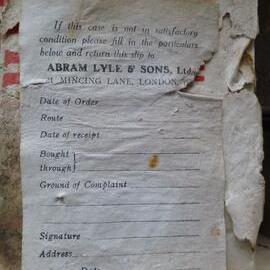 If this case is not in satisfactory
condition please fill in the particulars
below and return this slip to
ABRAM LYLE & SONS, Ltd.
21 MINCING LANE, LONDON,
Date of Order
Route
Date of receipt
Bought
through
Ground of Complaint
Signature
Address
Date